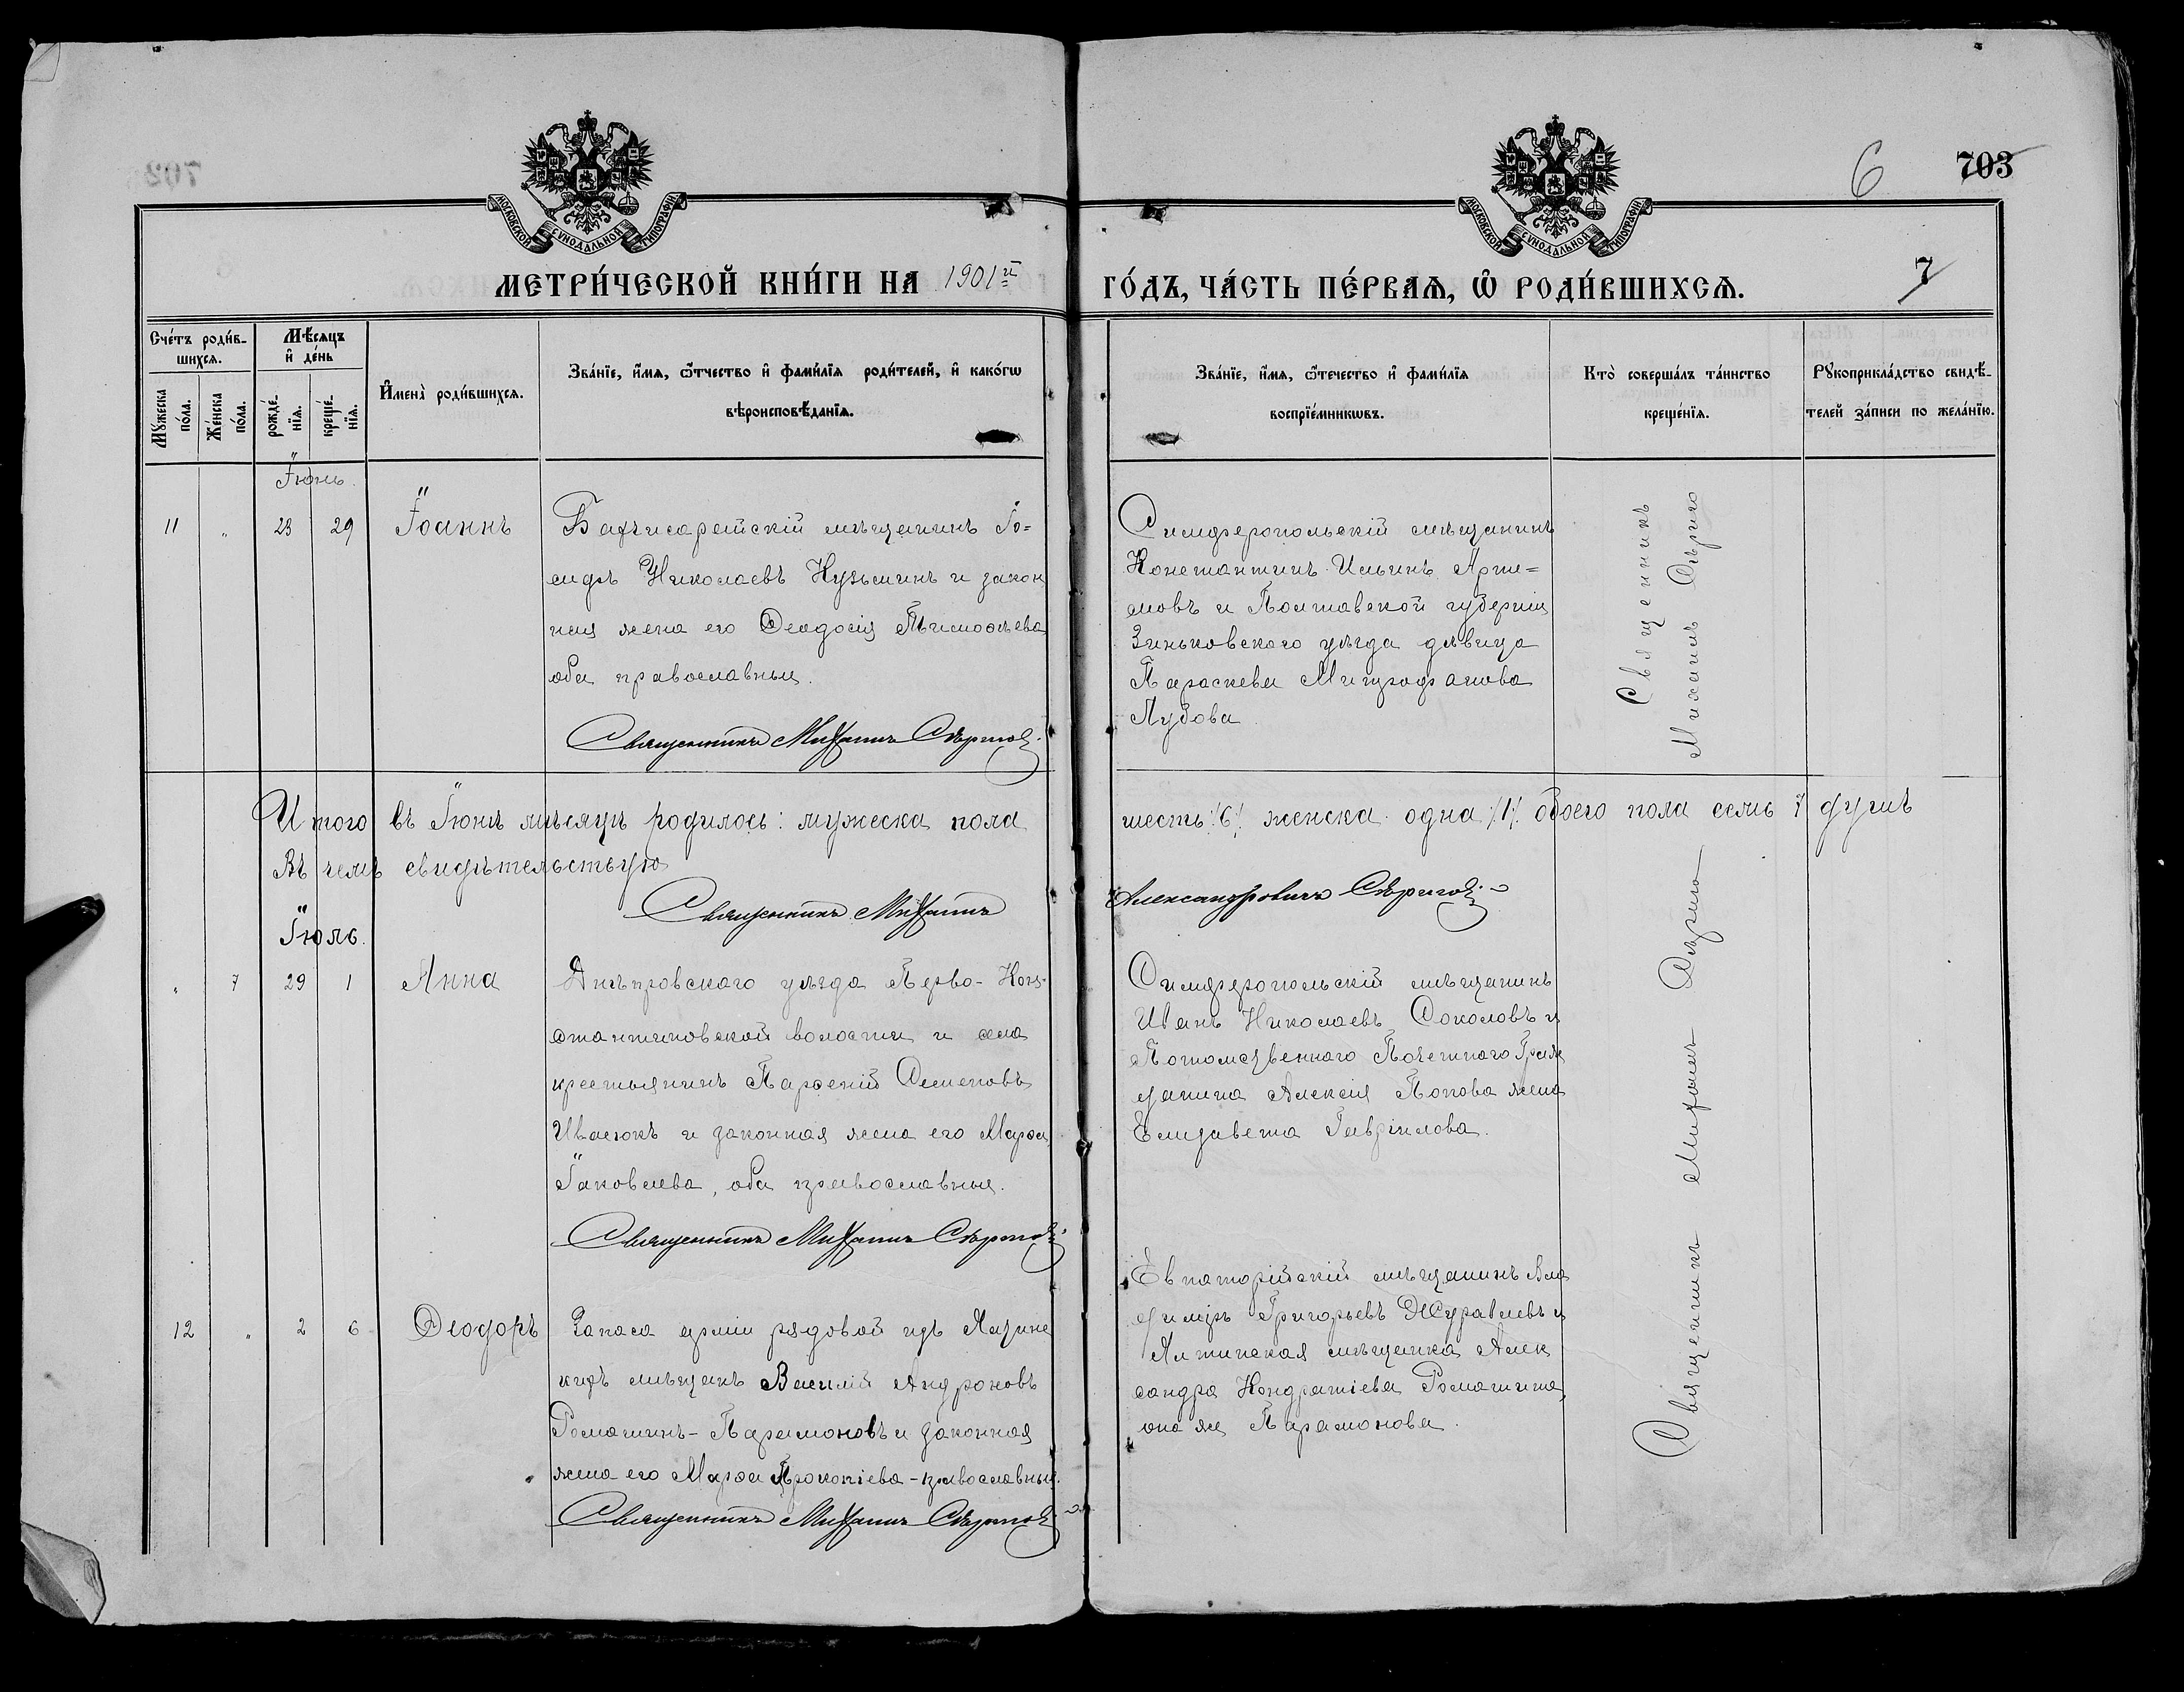 703
6
7
МОСКОВСКОЙ СѴНОДАЛЬНОЙ ТИПОГРАФІИ
МОСКОВСКОЙ СѴНОДАЛЬНОЙ ТИПОГРАФІИ
МЕТРИ́ЧЕСКОЙ КНИ́ГИ НА 1901й
ГО́ДЪ, ЧА́СТЬ ПЕ́РВАѦ, Ѡ РОДИ́ВШИХСѦ.
Сче́тъ роди́в-
шихсѧ.
Мꙋ́жеска
по́ла.
Же́нска
по́ла.
Мѣ́сѧцъ
и҆ де́нь
рожде́-
нїѧ.
креще́-
нїѧ.
И҆мена̀ роди́вшихсѧ.
Зва́нїе, и҆́мѧ, ѻ҆́тчество и҆ фами́лїѧ роди́телей, и҆ како́гѡ
вѣроисповѣ́данїѧ.
Зва́нїе, и҆́мѧ, ѻ҆́течество и҆ фами́лїѧ
воспрїе́мникѡвъ.
Кто̀ соверша́лъ та́инство
креще́нїѧ.
Рꙋкоприкла́дство свидѣ́-
телей за́писи по жела́нїю.
Іюнь.
11 " 23 29 Іоаннъ
Бахчисарайскій мѣщанинъ Іо=
сифъ Николаевъ Кузьминъ и закон
ная жена его Ѳеодосія Тимоѳѣева
оба православныи.
Священникъ Михаилъ Сѣриков
Симферопольскій мѣщанинъ
Константинъ Ильинъ Арти=
мовъ и Полтавской губерніи
Зиньковского уѣзда дѣвица
Параскева Митрофанова
Лубова
Священникъ
Михаилъ Сѣрико
Итого въ Іюнѣ мѣсяцѣ родилось: мужеска пола
шесть /6/. женска одна /1/. обоего пола семь 7 душъ
Въ чемъ свидѣтельствую
Священникъ Михаилъ
Александровичъ Сѣриков
Іюль.
" 7 29 1 Анна
Днѣпровского уѣзда Перво-Кон-
стантиновской волости и села
крестьянинъ Парѳеній Семеновъ
Ивасюкъ и законная жена его Марѳа
Іаковлева, оба православныи.
Священникъ Михаилъ Сѣриков
Симферопольскій мѣщанинъ
Иванъ Николаевъ Соколовъ и
Потомственного Почетного Граж
данина Алексія Попова жена
Елизавета Гавріилова.
12 " 2 6 Ѳеодоръ
Запаса арміи рядовой изъ
мѣщанъ Василій Андроновъ
Ромашинъ-Парамоновъ и законная
жена его Марѳа Прокопіева-православныи.
Священникъ Михаилъ Сѣриков
Евпаторійскій мѣщанинъ Вла
диміръ Григорьевъ Журавлевъ и
Ялтинская мѣщанка Алек
сандра Кондратіева Ромашина,
она же Парамонова.
Священникъ Михаилъ Сѣрико